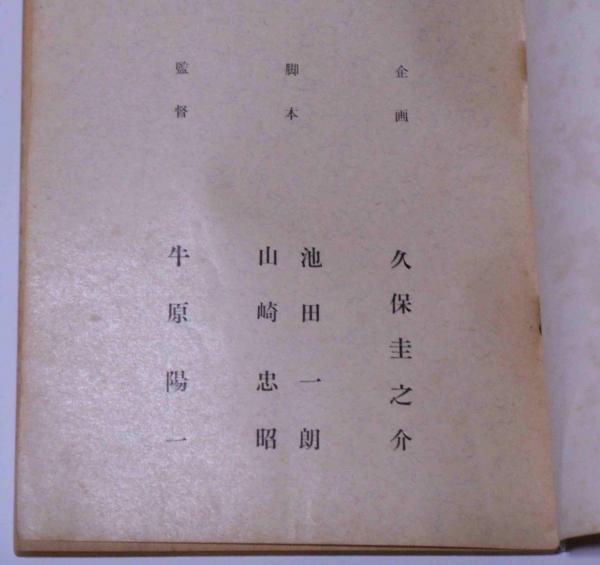 企画
久保圭之介
脚本
池田一朗
山崎忠昭
監督
牛原陽一